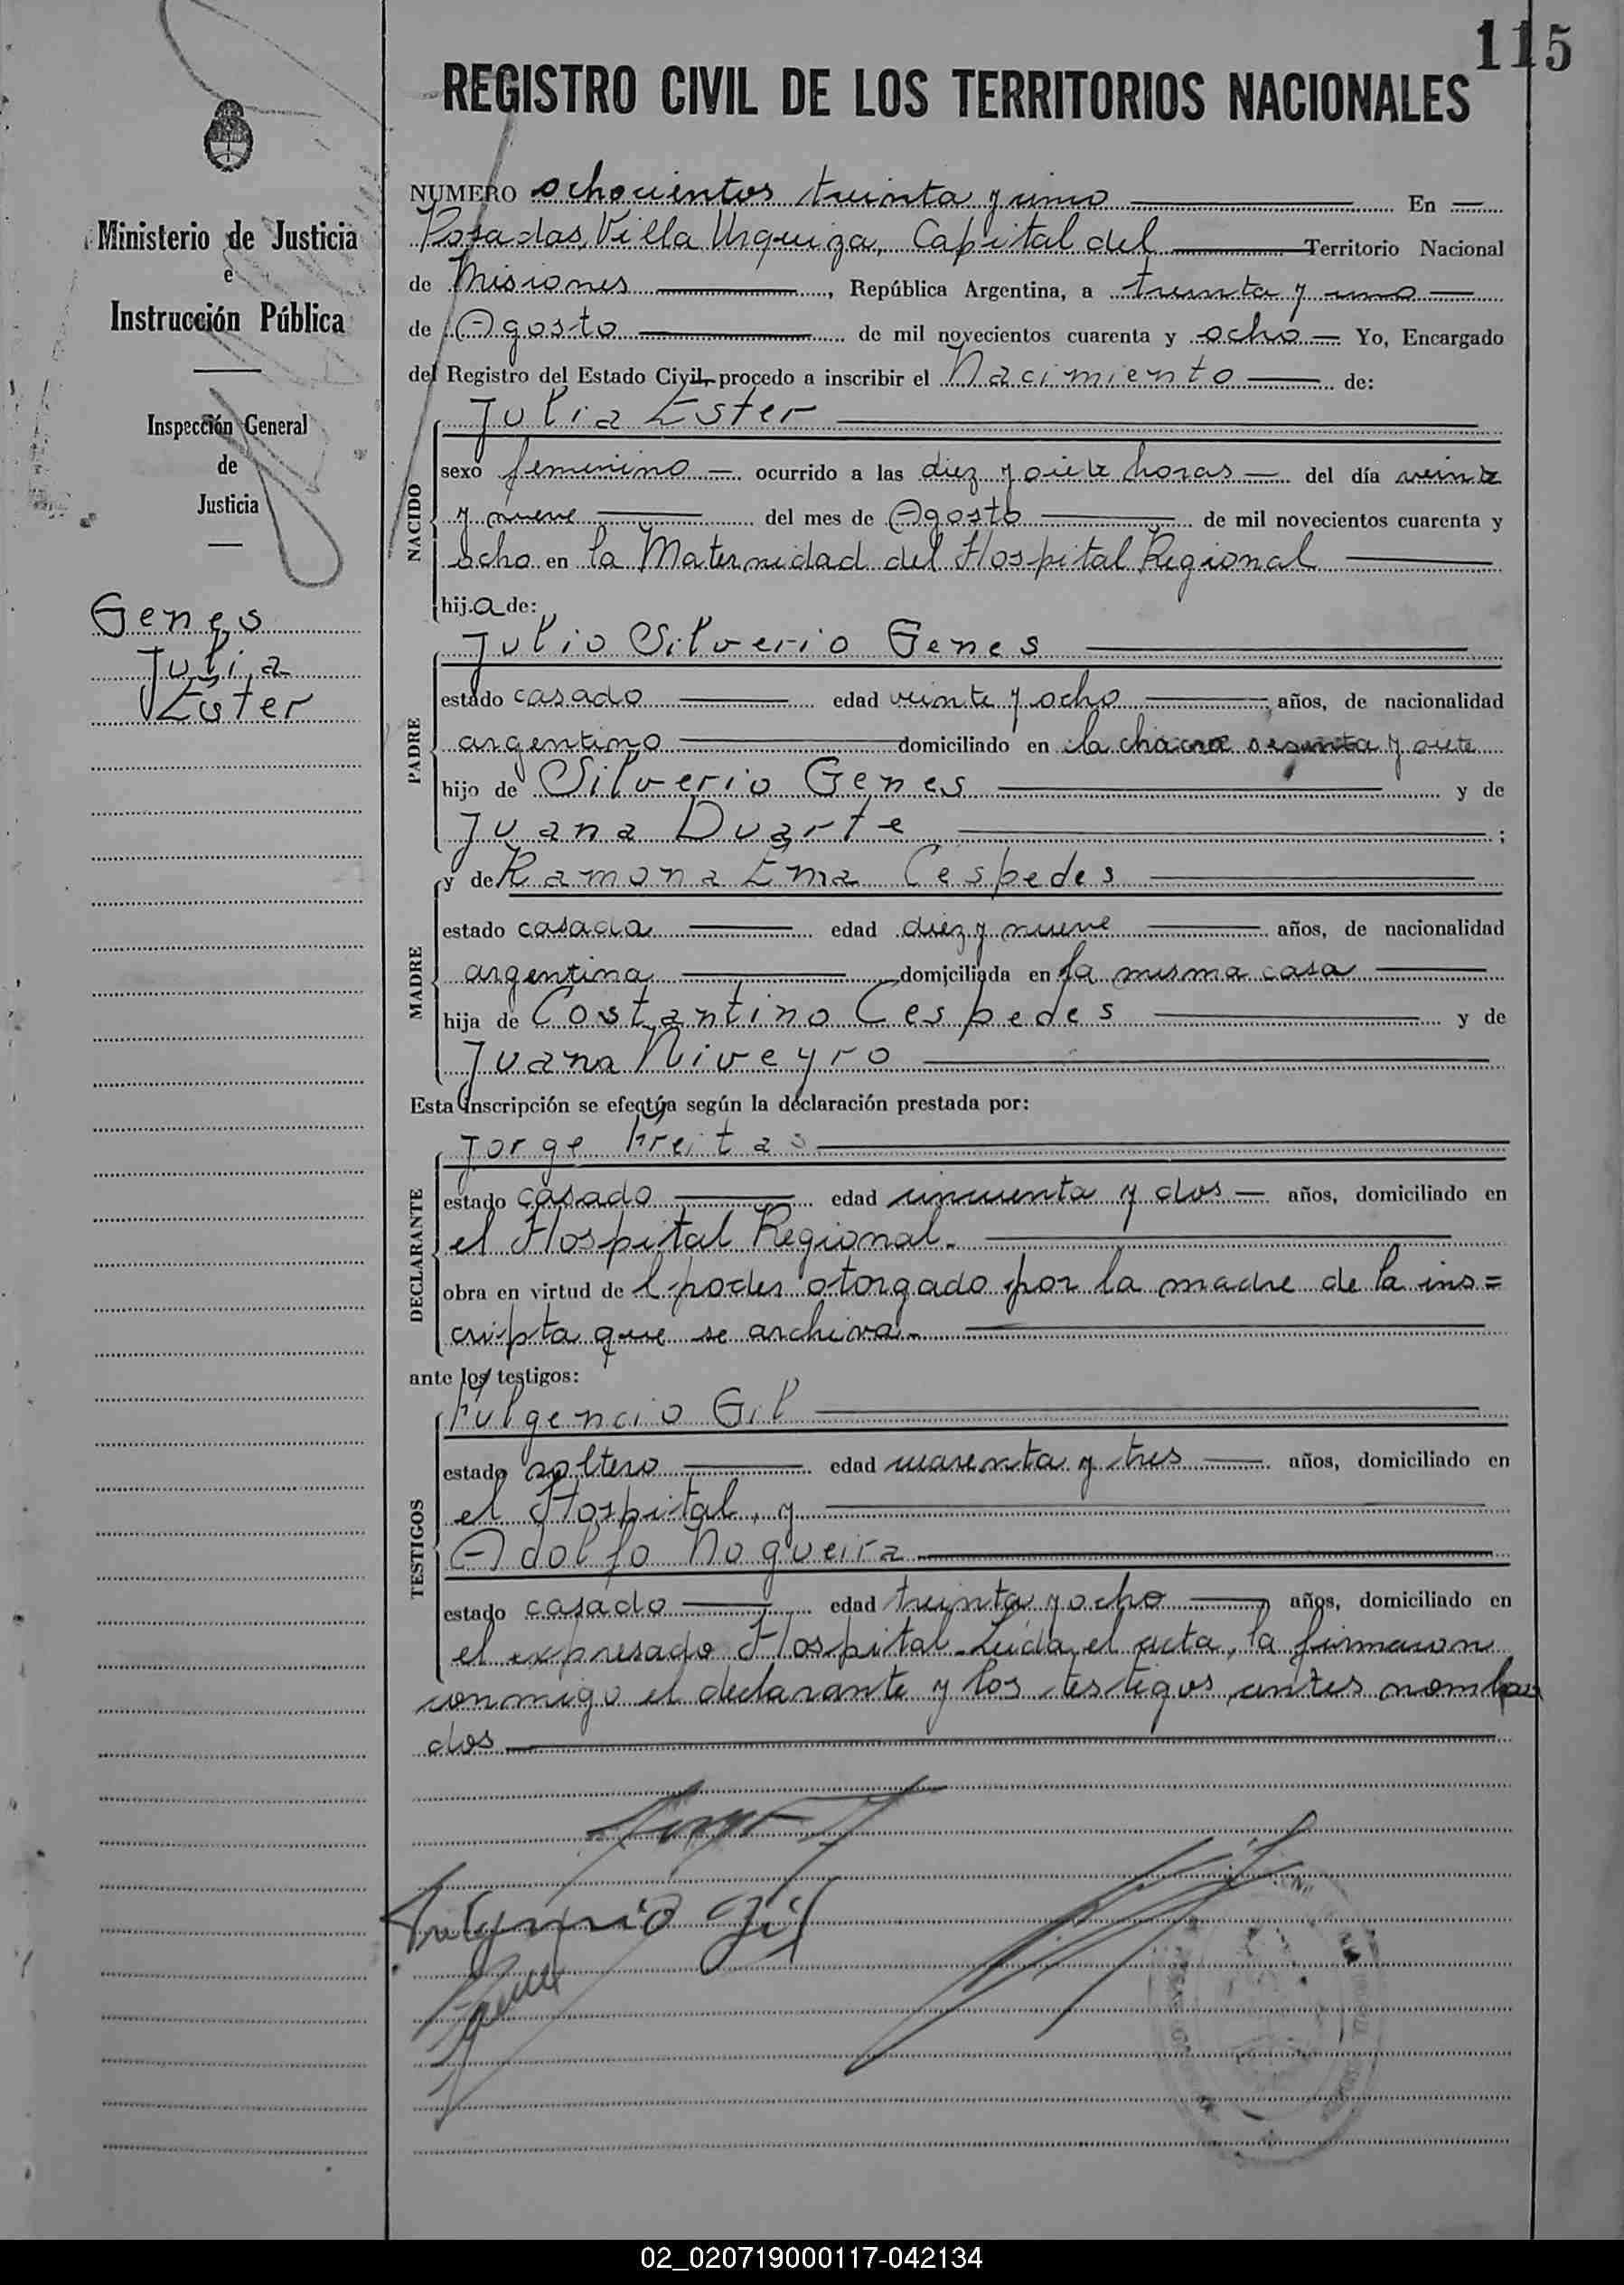 115
REGISTRO CIVIL DE LOS TERRITORIOS NACIONALES
Ministerio de Justicia
e
Instrucción Pública
Inspección General
de
Justicia
Genes
Julia
Ester
NUMERO ochocientos treinta y uno En
Posadas, Villa Urquiza, Capital del Territorio Nacional
de Misiones, República Argentina, a treinta y uno
de Agosto de mil novecientos cuarenta y ocho Yo, Encargado
del Registro del Estado Civil, procedo a inscribir el Nacimiento de:
Julia Ester
NACIDO
sexo femenino ocurrido a las diez y siete horas del día veinte
y nueve del mes de Agosto de mil novecientos cuarenta y
ocho en la Maternidad del Hospital Regional
hija de:
Julio Silverio Genes
PADRE
estado casado edad veinte y ocho años, de nacionalidad
argentino domiciliado en la chacra y siete
hijo de Silverio Genes y de
Juana Duarte ;
y de Ramona Ema Cespedes
MADRE
estado casada edad diez y nueve años, de nacionalidad
argentina domiciliada en la misma casa
hija de Costantino Cespedes y de
Juana Niveyro
Esta inscripción se efectúa según la declaración prestada por:
Jorge Freitas
DECLARANTE
estado casado edad cincuenta y dos años, domiciliado en
el Hospital Regional.
obra en virtud de l poder otorgado por la madre de la ins=
cripta que se archiva.
ante los testigos:
Fulgencio Gil
TESTIGOS
estado soltero edad cuarenta y tres años, domiciliado en
el Hospital, y
Adolfo Nogueira
estado casado edad treinta y ocho años, domiciliado en
el expresado Hospital. Leida el acta, la firmaron
conmigo el declarante y los testigos antes nombra
dos
Fulgencio Gil
02_020719000117-042134